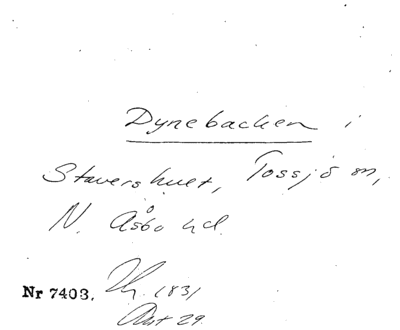 Dynebacken i
Stavershult, Tossjö sn,
N. Åsbo hd.
Nr 7403. 1831
Akt 29.